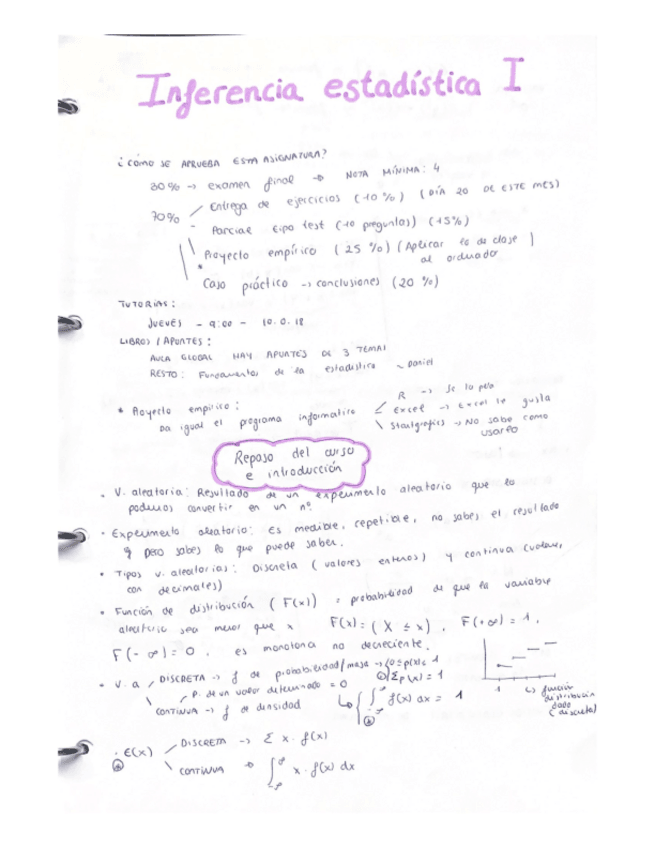 Inferencia estadística I
¿CÓMO SE APRUEBA ESTA ASIGNATURA?
30% → examen final → NOTA MÍNIMA: 4
70% Entrega de ejercicios (10%) (DÍA 20 DE ESTE MES)
- Parcial tipo test (10 preguntas) (15%)
* Proyecto empírico (25%) (Aplicar lo de clase
al ordenador
Caso práctico → conclusiones (20%)
TUTORIAS:
JUEVES - 9:00 - 10.0.18
LIBROS / APUNTES:
AULA GLOBAL HAY APUNTES DE 3 TEMAS
RESTO: Fundamentos de la estadística - Daniel
* Proyecto empírico:
Da igual el programa informatico
R → Se la pela
Excel → Excel le gusta
Statgrafics → No sabe como
usarlo
Repaso del curso
e introducción
. V. aleatoria: Resultado de un experimento aleatorio que lo
podemos convertir en un nº.
. Experimento aleatorio: Es medible, repetible, no sabes el resultado
pero sabes lo que puede saber.
. Tipos v. aleatorias: Discreta (valores enteros) y continua (valores,
con decimales)
. Función de distribución (F(x)) = probabilidad de que la variable
aleatoria sea menor que x F(x)=(X ≤ x). F(+∞)=1.
F(-∞)=0. es monotona no decreciente.
. V. a / DISCRETA → f de probabilidad/masa → 0≤p(x)≤1
Σp(x)=1
P. de un valor determinado = 0
\ CONTINUA → f de densidad ∫ f(x) dx = 1
1 → función
distribución
dado
(discreta)
. E(x) / DISCRETA → Σ x · f(x)
\ CONTINUA → ∫ x · f(x) dx